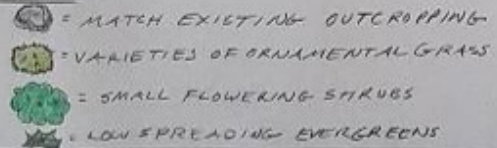 = MATCH EXISTING OUTCROPPING
= VARIETIES OF ORNAMENTAL GRASS
= SMALL FLOWERING SHRUBS
= LOW SPREADING EVERGREENS